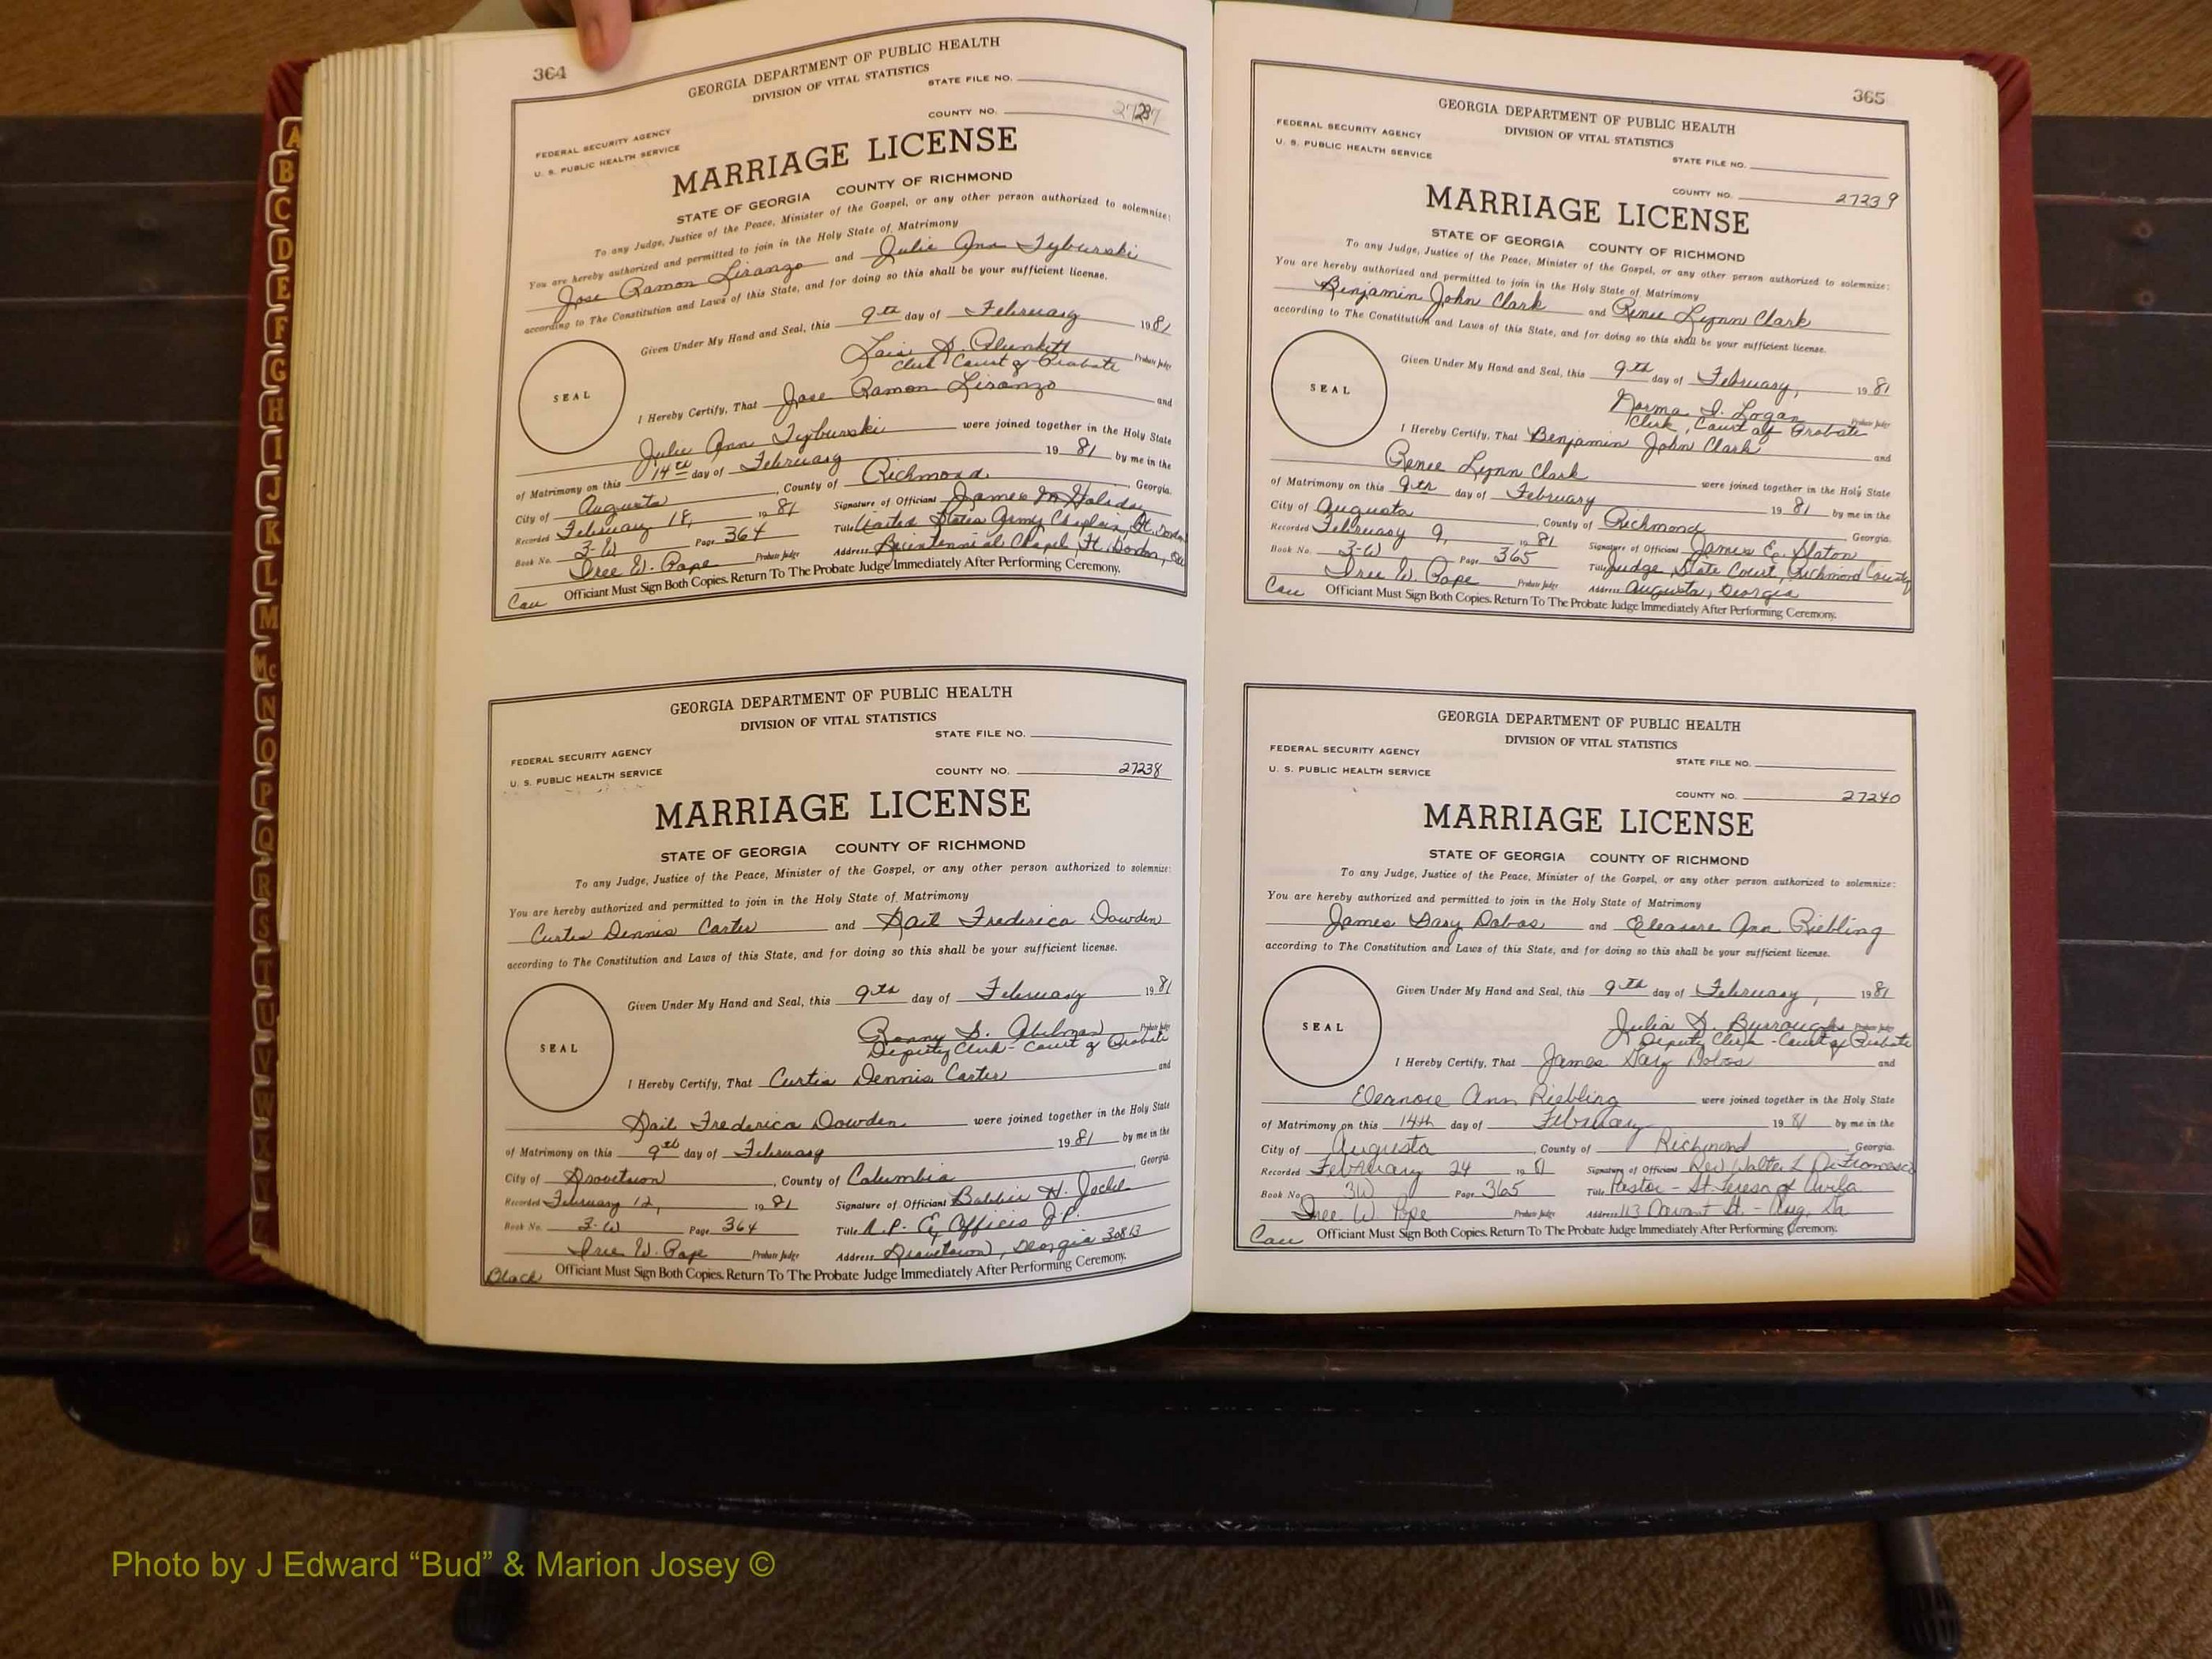 364
GEORGIA DEPARTMENT OF PUBLIC HEALTH
DIVISION OF VITAL STATISTICS
STATE FILE NO.
COUNTY NO.
FEDERAL SECURITY AGENCY
U. S. PUBLIC HEALTH SERVICE
MARRIAGE LICENSE
STATE OF GEORGIA COUNTY OF RICHMOND
To any Judge, Justice of the Peace, Minister of the Gospel, or any other person authorized to solemnize:
You are hereby authorized and permitted to join in the Holy State of Matrimony
Jose Ramon Liranzo and Julie Ann Tyburski
according to The Constitution and Laws of this State, and for doing so this shall be your sufficient license.
Given Under My Hand and Seal, this 9th day of February 1981
Lois D. Plunkett Probate Judge
Clerk Court of Probate
SEAL
I Hereby Certify, That Jose Ramon Liranzo and
Julie Ann Tyburski were joined together in the Holy State
of Matrimony on this 14th day of February 1981 by me in the
City of Augusta, County of Richmond, Georgia.
Recorded February 18, 1981 Signature of Officiant James M Holiday
Book No. 3-W Page 364 Title United States Army Chaplain, Ft. Gordon
Iree W. Pope Probate Judge Address Bicentennial Chapel, Ft. Gordon, Ga
Cau Officiant Must Sign Both Copies. Return To The Probate Judge Immediately After Performing Ceremony.
GEORGIA DEPARTMENT OF PUBLIC HEALTH
DIVISION OF VITAL STATISTICS
STATE FILE NO.
FEDERAL SECURITY AGENCY
U. S. PUBLIC HEALTH SERVICE
COUNTY NO. 27238
MARRIAGE LICENSE
STATE OF GEORGIA COUNTY OF RICHMOND
To any Judge, Justice of the Peace, Minister of the Gospel, or any other person authorized to solemnize:
You are hereby authorized and permitted to join in the Holy State of Matrimony
Curtis Dennis Carter and Gail Frederica Dowden
according to The Constitution and Laws of this State, and for doing so this shall be your sufficient license.
Given Under My Hand and Seal, this 9th day of February 1981
S. Probate Judge
Deputy Clerk - Court of Probate
SEAL
I Hereby Certify, That Curtis Dennis Carter and
Gail Frederica Dowden were joined together in the Holy State
of Matrimony on this 9th day of February 1981 by me in the
City of Grovetown, County of Columbia, Georgia.
Recorded February 12, 1981 Signature of Officiant H.
Book No. 3-W Page 364 Title N.P. & Ex Officio J.P.
Iree W. Pope Probate Judge Address Grovetown, Georgia 30813
Black Officiant Must Sign Both Copies. Return To The Probate Judge Immediately After Performing Ceremony.
365
GEORGIA DEPARTMENT OF PUBLIC HEALTH
DIVISION OF VITAL STATISTICS
FEDERAL SECURITY AGENCY
U. S. PUBLIC HEALTH SERVICE
STATE FILE NO.
COUNTY NO. 27239
MARRIAGE LICENSE
STATE OF GEORGIA COUNTY OF RICHMOND
To any Judge, Justice of the Peace, Minister of the Gospel, or any other person authorized to solemnize:
You are hereby authorized and permitted to join in the Holy State of Matrimony
Benjamin John Clark and Renee Lynn Clark
according to The Constitution and Laws of this State, and for doing so this shall be your sufficient license.
Given Under My Hand and Seal, this 9th day of February, 1981
Norma I. Logan Probate Judge
Clerk, Court of Probate
SEAL
I Hereby Certify, That Benjamin John Clark and
Renee Lynn Clark were joined together in the Holy State
of Matrimony on this 9th day of February 1981 by me in the
City of Augusta, County of Richmond, Georgia.
Recorded February 9, 1981 Signature of Officiant James E. Slaton
Book No. 3-W Page 365 Title Judge, State Court, Richmond County
Iree W. Pope Probate Judge Address Augusta, Georgia
Cau Officiant Must Sign Both Copies. Return To The Probate Judge Immediately After Performing Ceremony.
GEORGIA DEPARTMENT OF PUBLIC HEALTH
DIVISION OF VITAL STATISTICS
FEDERAL SECURITY AGENCY
U. S. PUBLIC HEALTH SERVICE
STATE FILE NO.
COUNTY NO. 27240
MARRIAGE LICENSE
STATE OF GEORGIA COUNTY OF RICHMOND
To any Judge, Justice of the Peace, Minister of the Gospel, or any other person authorized to solemnize:
You are hereby authorized and permitted to join in the Holy State of Matrimony
James Gary Dobos and Eleanore Ann Riebling
according to The Constitution and Laws of this State, and for doing so this shall be your sufficient license.
Given Under My Hand and Seal, this 9th day of February, 1981
Julia D. Burroughs Probate Judge
Deputy Clerk - Court of Probate
SEAL
I Hereby Certify, That James Gary Dobos and
Eleanore Ann Riebling were joined together in the Holy State
of Matrimony on this 14th day of February 1981 by me in the
City of Augusta, County of Richmond, Georgia.
Recorded February 24 1981 Signature of Officiant Rev Walter L DiFrancesco
Book No. 3W Page 365 Title Pastor - St. Teresa of Avila
Iree W. Pope Probate Judge Address 113 Davant St. - Aug, Ga
Cau Officiant Must Sign Both Copies. Return To The Probate Judge Immediately After Performing Ceremony.
A
B
C
D
E
F
G
H
I
J
K
L
M
Mc
N
O
P
Q
R
S
T
U
V
W
Photo by J Edward “Bud” & Marion Josey ©